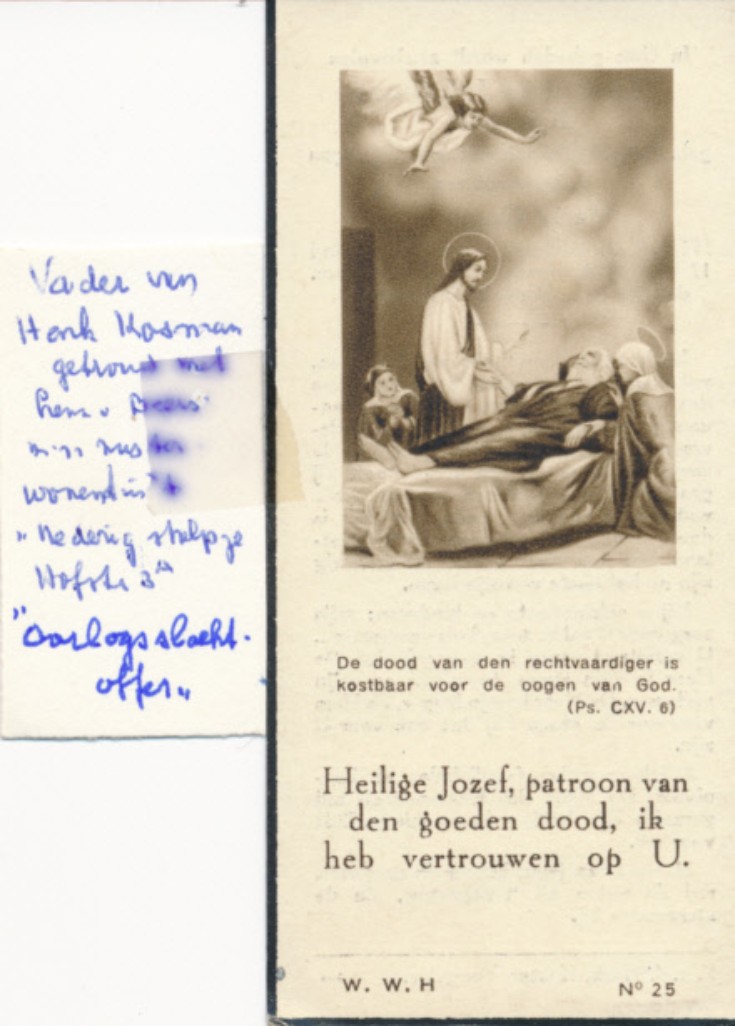 Vader van
Henk Kosman
getrouwd met
wonend in
"Nederig stulpje
Hofstr 3a
"oorlogsslacht-
offer"
De dood van den rechtvaardiger is
kostbaar voor de oogen van God.
(Ps. CXV. 6)
Heilige Jozef, patroon van
den goeden dood, ik
heb vertrouwen op U.
W. W. H
Nº 25